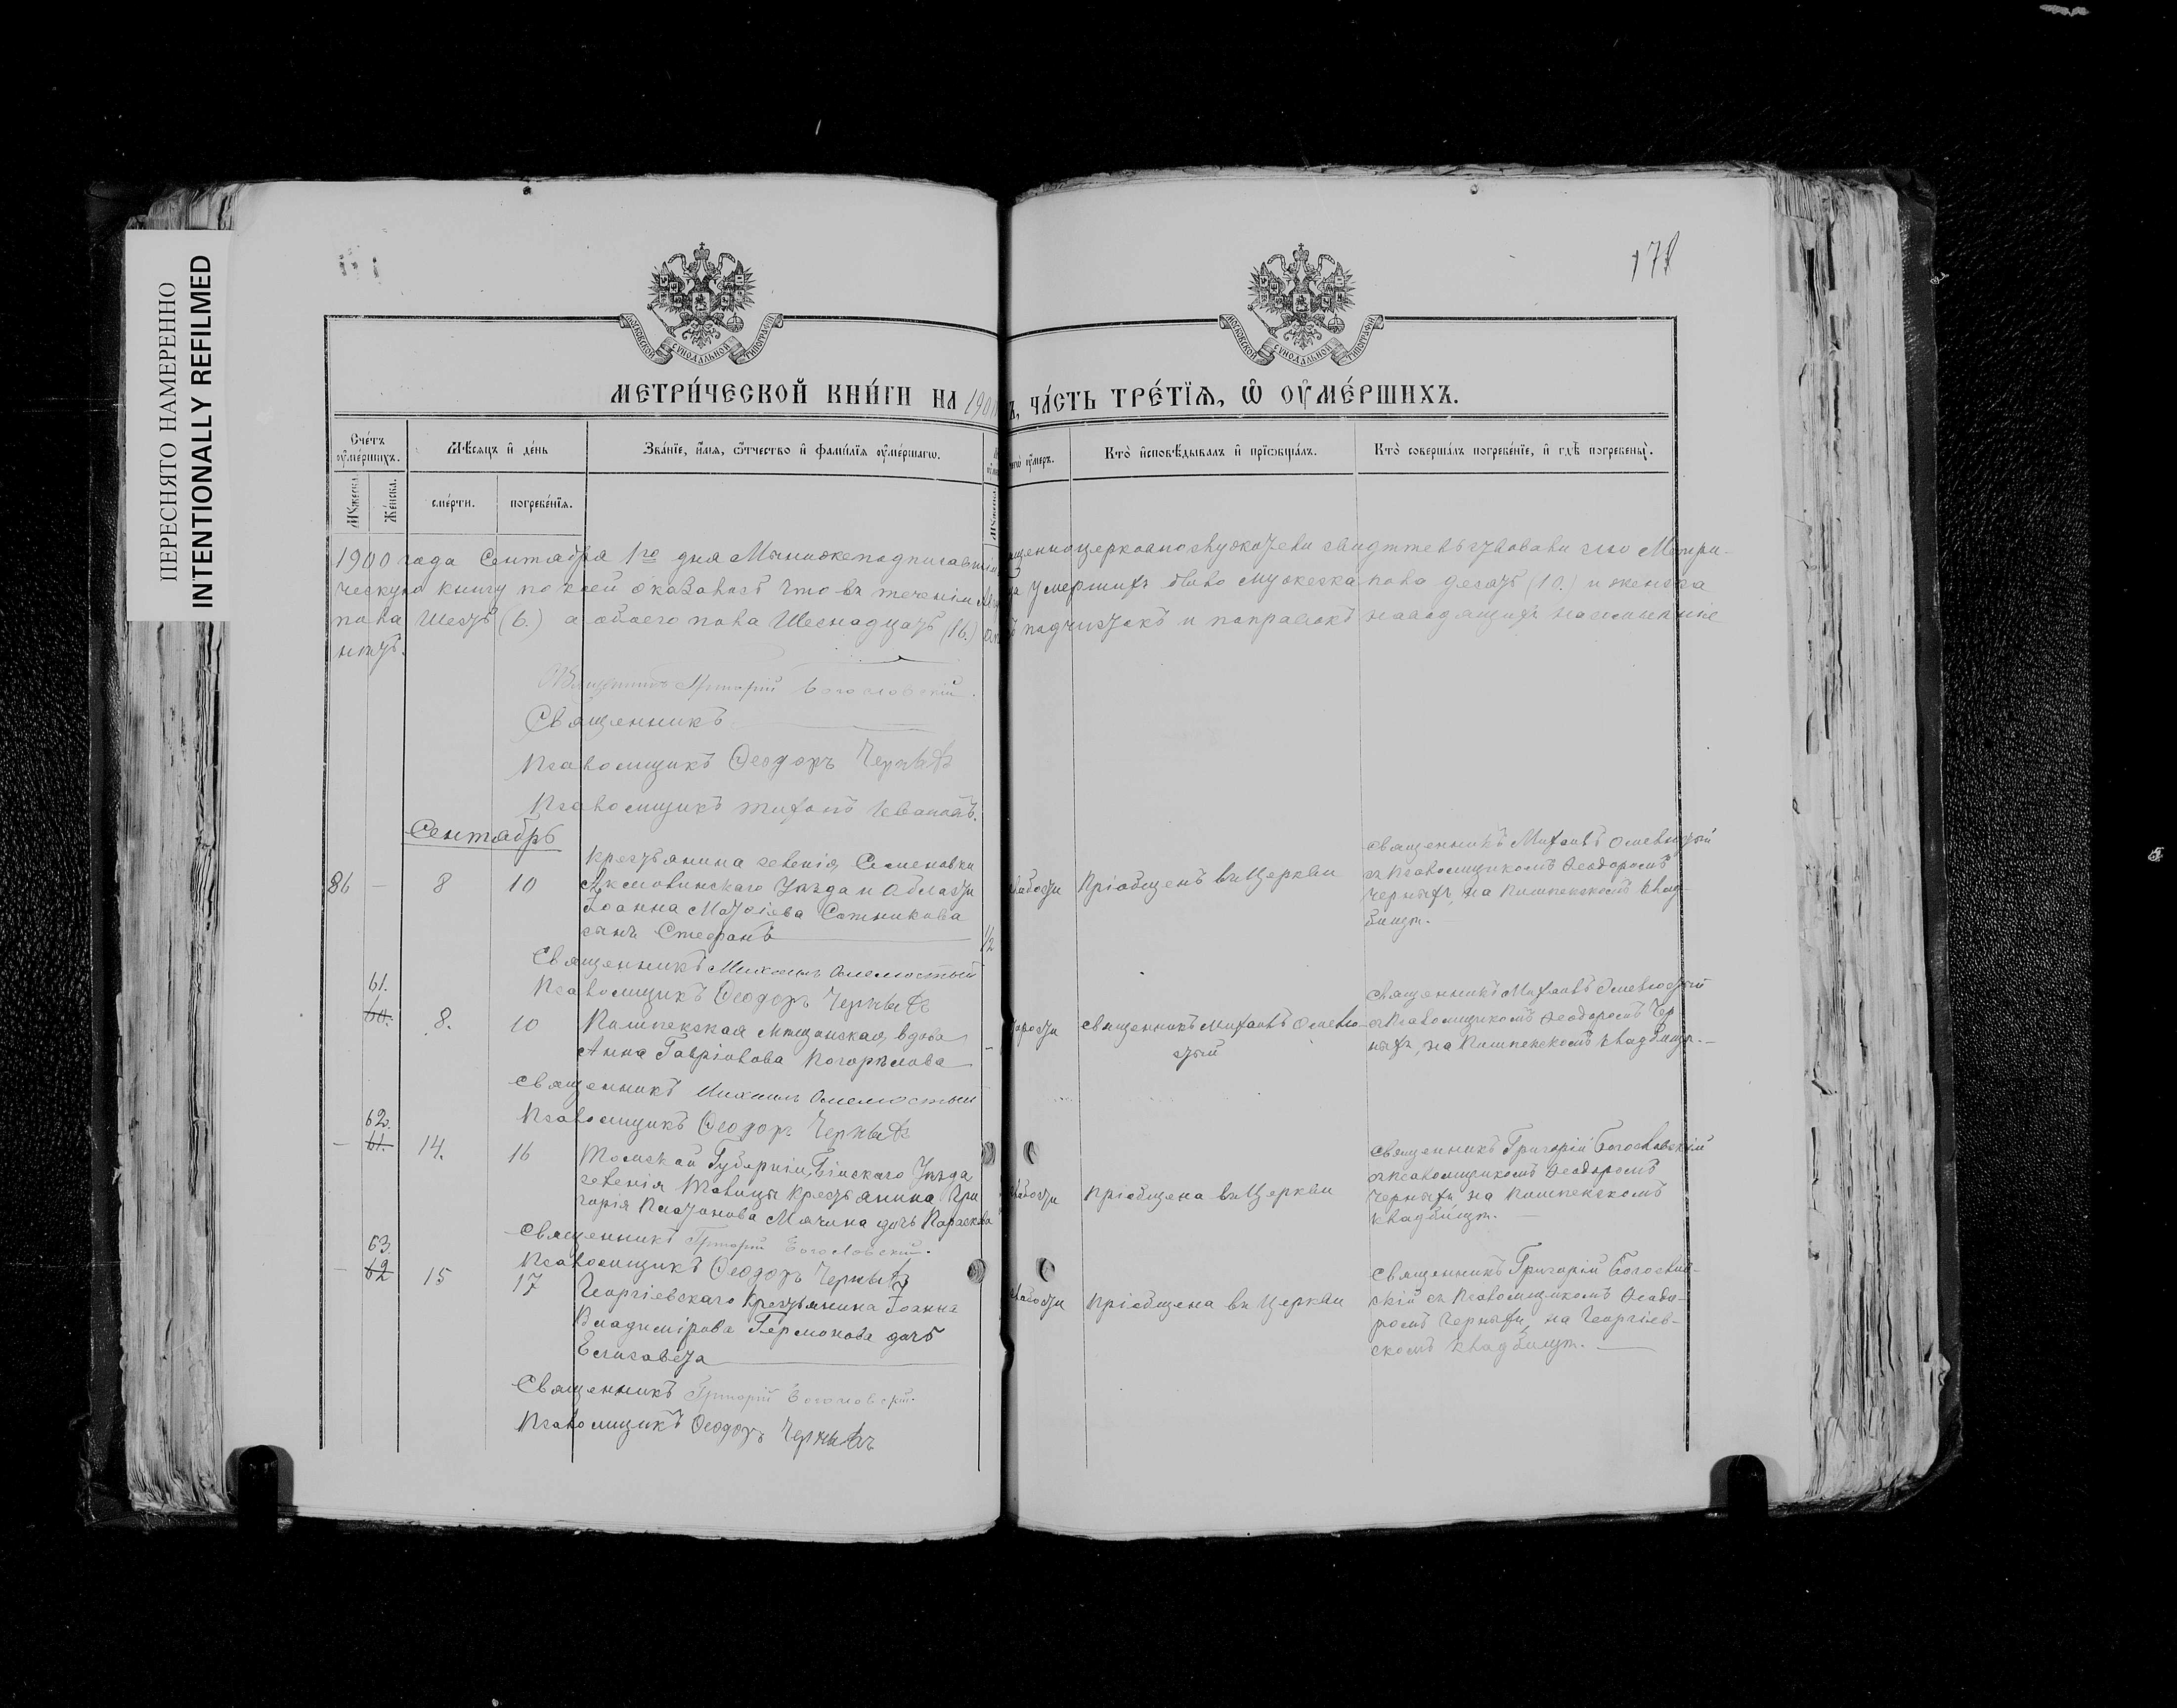 ПЕРЕСНЯТО НАМЕРЕННО
INTENTIONALLY REFILMED
МОСКОВСКОЙ СУНОДАЛЬНОЙ ТИПОГРАФІИ
МОСКОВСКОЙ СУНОДАЛЬНОЙ ТИПОГРАФІИ
МЕТРИ́ЧЕСКОЙ КНИ́ГИ НА 1900 ЧА́СТЬ ТРЕ́ТЇѦ, Ѽ ОУ҆МЕ́РШИХЪ.
Сче́тъ оумершихъ.
Мѣсяцъ и де́нь
Зва́нїе, и́мя, о́тчество и фами́лїя оуме́ршагѡ.
оумеръ.
Кто̀ исповѣ́дывалъ и прїѡбща́лъ.
Кто̀ соверша́лъ погребе́нїе, и гдѣ̀ погребены̀.
Мужеска.
Женска.
сме́рти.
погребе́нїя.
1900 года Сентября 1го дня Мы нижеподписавшіи священноцерковнослужители свидѣтельствовали сію Метри-
ческую книгу по коей оказалось что въ теченіи умершихъ было мужеска пола десять (10.) и женска
пола Шесть (6.) а обоего пола Шеснадцать (16.) подчистокъ и поправокъ наводящихъ на сомнѣніе
нѣтъ.
Григорій Богословскій.
Священникъ
Псаломщикъ Ѳеодоръ Черныхъ
Псаломщикъ Тихонъ Ивановъ.
Сентябрь
86 — 8 10
Крестьянина селенія Семеновки
Акмолинскаго Уѣзда и Области
Іоанна Матѳіева Сотникова
сынъ Стефанъ
1/2
слабости
Пріобщенъ въ Церкви
Священникъ Михаилъ Омелюстый
съ Псаломщикомъ Ѳеодоромъ
Черныхъ, на Пишпекскомъ клад-
бищѣ.
Священникъ Михаилъ Омелюстый
Псаломщикъ Ѳеодоръ Черныхъ
61.
60. 8. 10
Пишпекская мѣщанская вдова
Анна Гавріилова Погорѣлова
старости
Священникъ Михаилъ Омелю-
стый
Священникъ Михаилъ Омелюстый
съ Псаломщикомъ Ѳеодоромъ Чер
ныхъ, на Пишпекскомъ кладбищѣ.
Священникъ Михаилъ Омелюстый
Псаломщикъ Ѳеодоръ Черныхъ
62.
— 61. 14. 16
Томской Губерніи, Бійскаго Уѣзда
селенія Товицы крестьянина Гри
горія Платонова Мячина дочь Параскева
слабости
Пріобщена въ Церкви
Священникъ Григорій Богословскій
съ Псаломщикомъ Ѳеодоромъ
Черныхъ на Пишпекскомъ
кладбищѣ.
Священникъ Григорій Богословскій.
Псаломщикъ Ѳеодоръ Черныхъ
63.
— 62 15 17
Георгіевскаго крестьянина Іоанна
Владимірова Гермонова дочь
Елисавета
слабости
Пріобщена въ Церкви
Священникъ Григорій Богослов-
скій съ Псаломщикомъ Ѳеодо-
ромъ Черныхъ, на Георгіев-
скомъ кладбищѣ.
Священникъ Григорій Богословскій.
Псаломщикъ Ѳеодоръ Черныхъ